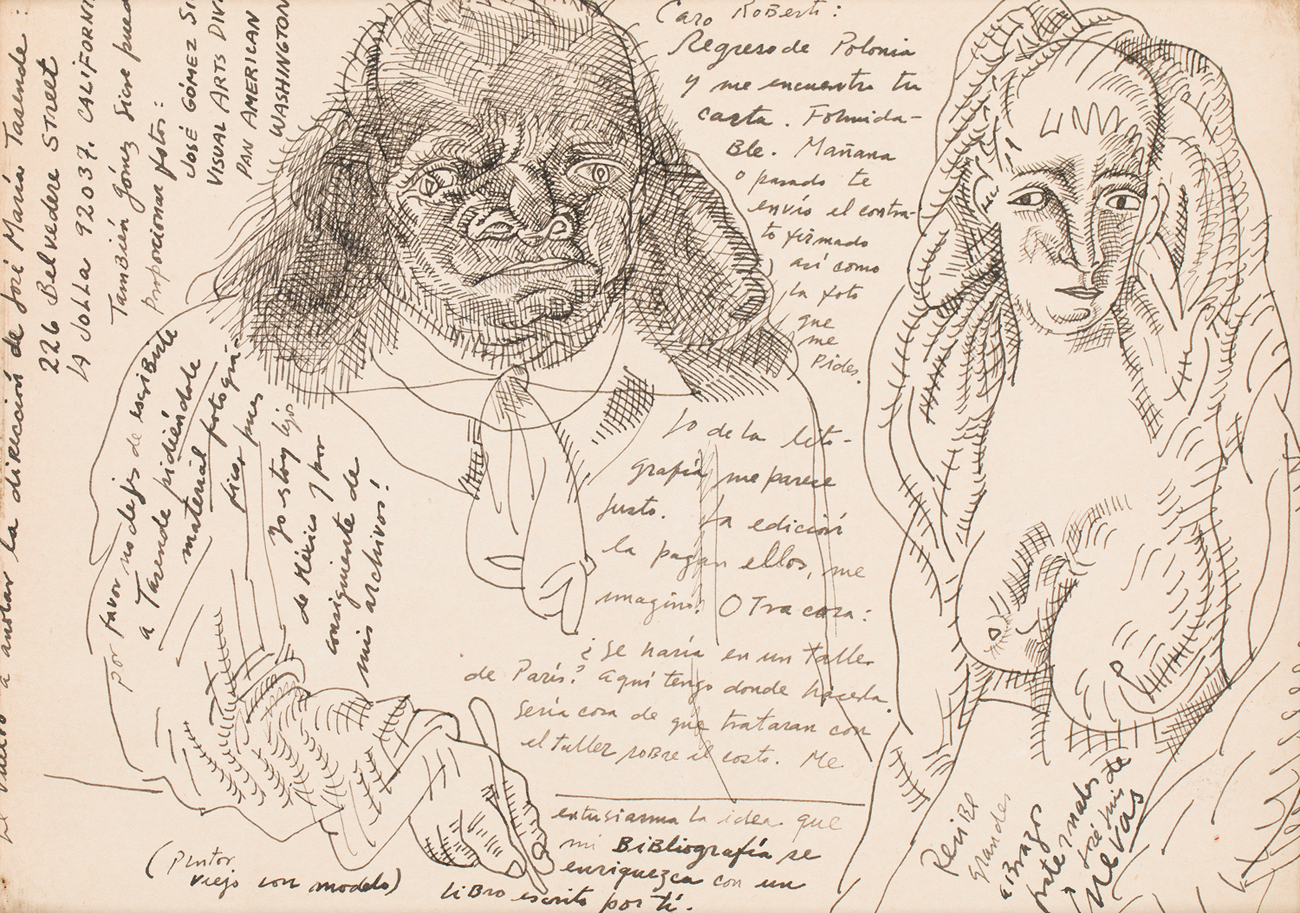 Caro Roberti:
Regreso de Polonia
y me encuentro tu
carta. Formida-
ble. Mañana
o pasado te
envío el contra-
to firmado
así como
la foto
que
me
Pides.
Lo de la lito-
grafía me parece
justo. La edición
la pagan ellos, me
imagino. Otra cosa:
¿Se haría en un taller
de París? Aquí tengo donde hacerla.
Sería cosa de que trataran con
el taller sobre el costo. Me
entusiasma la idea que
mi Bibliografía se
enriquezca con un
libro escrito por ti.
Recibe
grandes
abrazos
fraternales de
José Luis
Cuevas
(Pintor
viejo con modelo)
Por favor no dejes de escribirle
a Tasende pidiéndole
material fotográ-
fico pues
yo estoy lejos
de México y por
consiguiente de
mis archivos!
Te vuelvo a anotar la dirección de José María Tasende:
226 Belvedere Street
La Jolla 92037. CALIFORNI
También Gómez Sicre pued
proporcionar fotos:
José GÓMEZ SI
VISUAL ARTS DIV
PAN AMERICAN
WASHINGTON